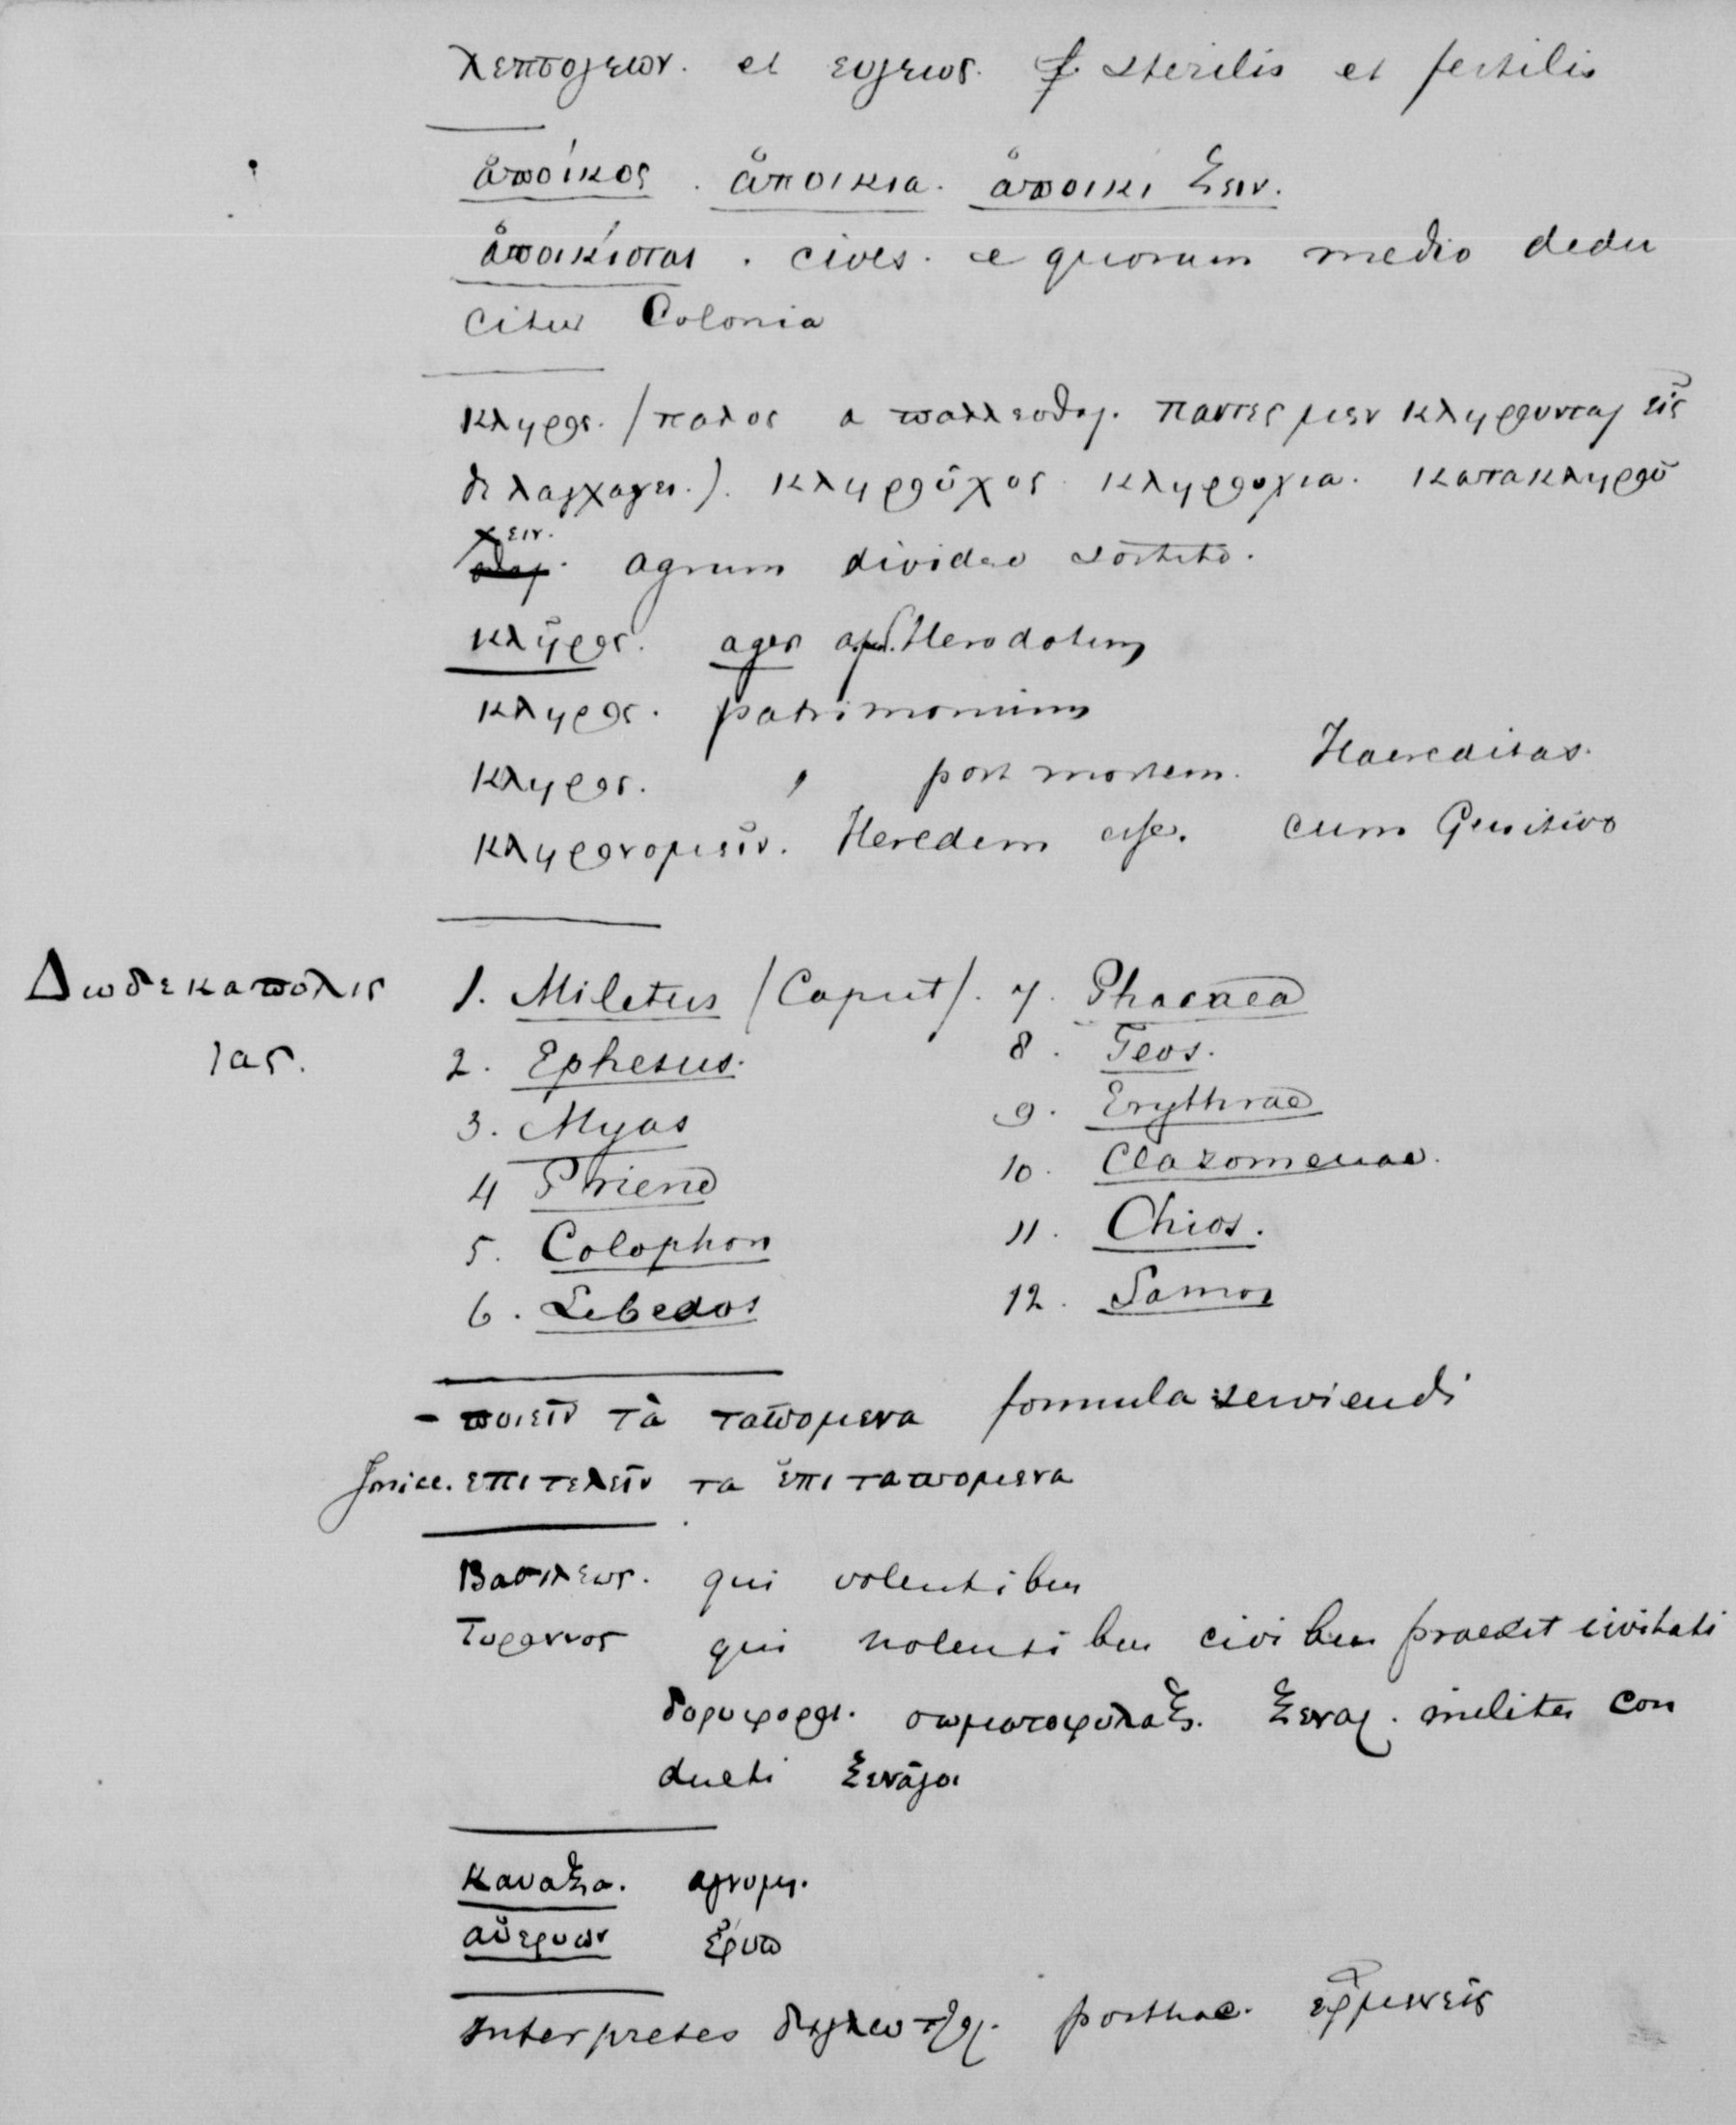 λεπτογειων. et ευγειως. sterilis et fertilis
ἀποίκος. ἀποικια. ἀποικίζειν.
ἀποικίσται. cives. e quorum medio dedu
citur Colonia
κληρος. (παλος a παλλεσθαι. παντες μεν κληρουνται εἷς
δε λαγχανει.). κληροῦχος κληρουχια. κατακληροῦ
χειν.
agrum divideo sortito.
κλῆρος. ager apud. Herodotum
κληρος. patrimonium
κληρος. " post mortem. Haereditas.
κληρονομεῖν. Heredem esse. cum Genitivo
Δωδεκαπολις
Ιας.
1. Miletus (Caput). 7. Phocaea
2. Ephesus. 8. Teos.
3. Myas 9. Erythrae
4 Priene 10. Clazomenae.
5. Colophon 11. Chios.
6. Lebedos 12. Samos
- ποιεῖν τὰ ταττομενα formula serviendi
Jonice. επιτελεῖν τα ἐπιταττομενα
Βασιλευς. qui volentibus
Τυραννος qui nolentibus civibus praeest civitati
δορυφοροι. σωματοφυλαξ. ξεναι. milites con
ducti ξενᾶγοι
καυαξια. αγνυμι.
αὐερυων ἐρύω
Interpretes posthac. ερμενεῖς